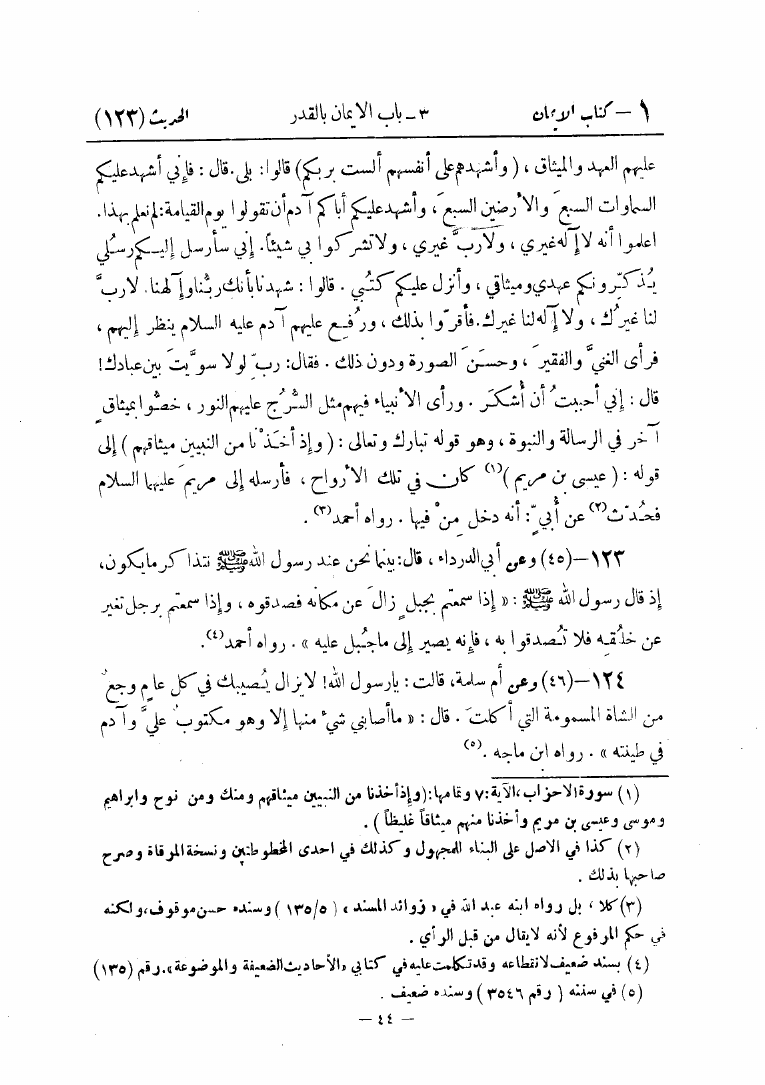 ١ – كتاب الايمان ٣ – باب الايمان بالقدر الحديث (١٢٣)
عليهم العهد والميثاق ، ( وأشهدهم على أنفسهم ألست بربكم) قالوا: بلى. قال : فإني أشهد عليكم
السماوات السبعَ والأرضين السبعَ ، وأشهد عليكم أباكم آدم أن تقولوا يوم القيامة: لم نعلم بهذا.
اعلموا أنه لا إله غيري ، ولا ربَّ غيري ، ولا تشركوا بي شيئاً. إني سأرسل إليكم رسُلي
يُذكّرونكم عهدي وميثاقي ، وأنزل عليكم كتُبي . قالوا : شهدنا بأنك ربُّنا وإلهنا. لا ربَّ
لنا غيرُك ، ولا إله لنا غيرك. فأقرّوا بذلك ، ورُفع عليهم آدم عليه السلام ينظر إليهم ،
فرأى الغنيَّ والفقيرَ ، وحسَن الصورة ودون ذلك . فقال: ربّ لولا سوَّيتَ بين عبادك!
قال : إني أحببتُ أن أُشكَر . ورأى الأنبياء فيهم مثل السُّرُج عليهم النور ، خصُّوا بميثاقٍ
آخر في الرسالة والنبوة ، وهو قوله تبارك وتعالى : ( وإذ أخذْنا من النبيين ميثاقهم ) إلى
قوله : ( عيسى بن مريم )(١) كان في تلك الأرواح ، فأرسله إلى مريمَ عليهما السلام
فحُدّث(٢) عن أُبيّ: أنه دخل مِنْ فيها . رواه أحمد(٣) .
١٢٣–(٤٥) وعن أبي الدرداء ، قال: بينما نحن عند رسول الله ﷺ نتذاكر ما يكون،
إذ قال رسول الله ﷺ : « إذا سمعتم بجبلٍ زالَ عن مكانه فصدقوه ، وإذا سمعتم برجل تغير
عن خلُقه فلا تُصدقوا به ، فإنه يصير إلى ما جُبل عليه » . رواه أحمد(٤).
١٢٤–(٤٦) وعن أم سلمة، قالت : يا رسول الله! لا يزال يُصيبك في كل عامٍ وجعٌ
من الشاة المسمومة التي أكلتَ . قال : « ما أصابني شيءٌ منها إلا وهو مكتوبٌ عليَّ وآدم
في طينته » . رواه ابن ماجه .(٥)
(١) سورة الاحزاب ، الآية : ٧ وتمامها : (وإذ أخذنا من النبيين ميثاقهم ومنك ومن نوح وابراهيم
وموسى وعيسى بن مريم وأخذنا منهم ميثاقاً غليظاً ) .
(٢) كذا في الاصل على البناء للمجهول وكذلك في احدى المخطوطتين ونسخة المرقاة وصرح
صاحبها بذلك .
(٣) كلا ، بل رواه ابنه عبد الله في « زوائد المسند » ( ١٣٥/٥ ) وسنده حسن موقوف، ولكنه
في حكم المرفوع لأنه لا يقال من قبل الرأي .
(٤) بسند ضعيف لانقطاعه وقد تكلمت عليه في كتابي «الأحاديث الضعيفة والموضوعة». رقم (١٣٥)
(٥) في سننه ( رقم ٣٥٤٦ ) وسنده ضعيف .
– ٤٤ –